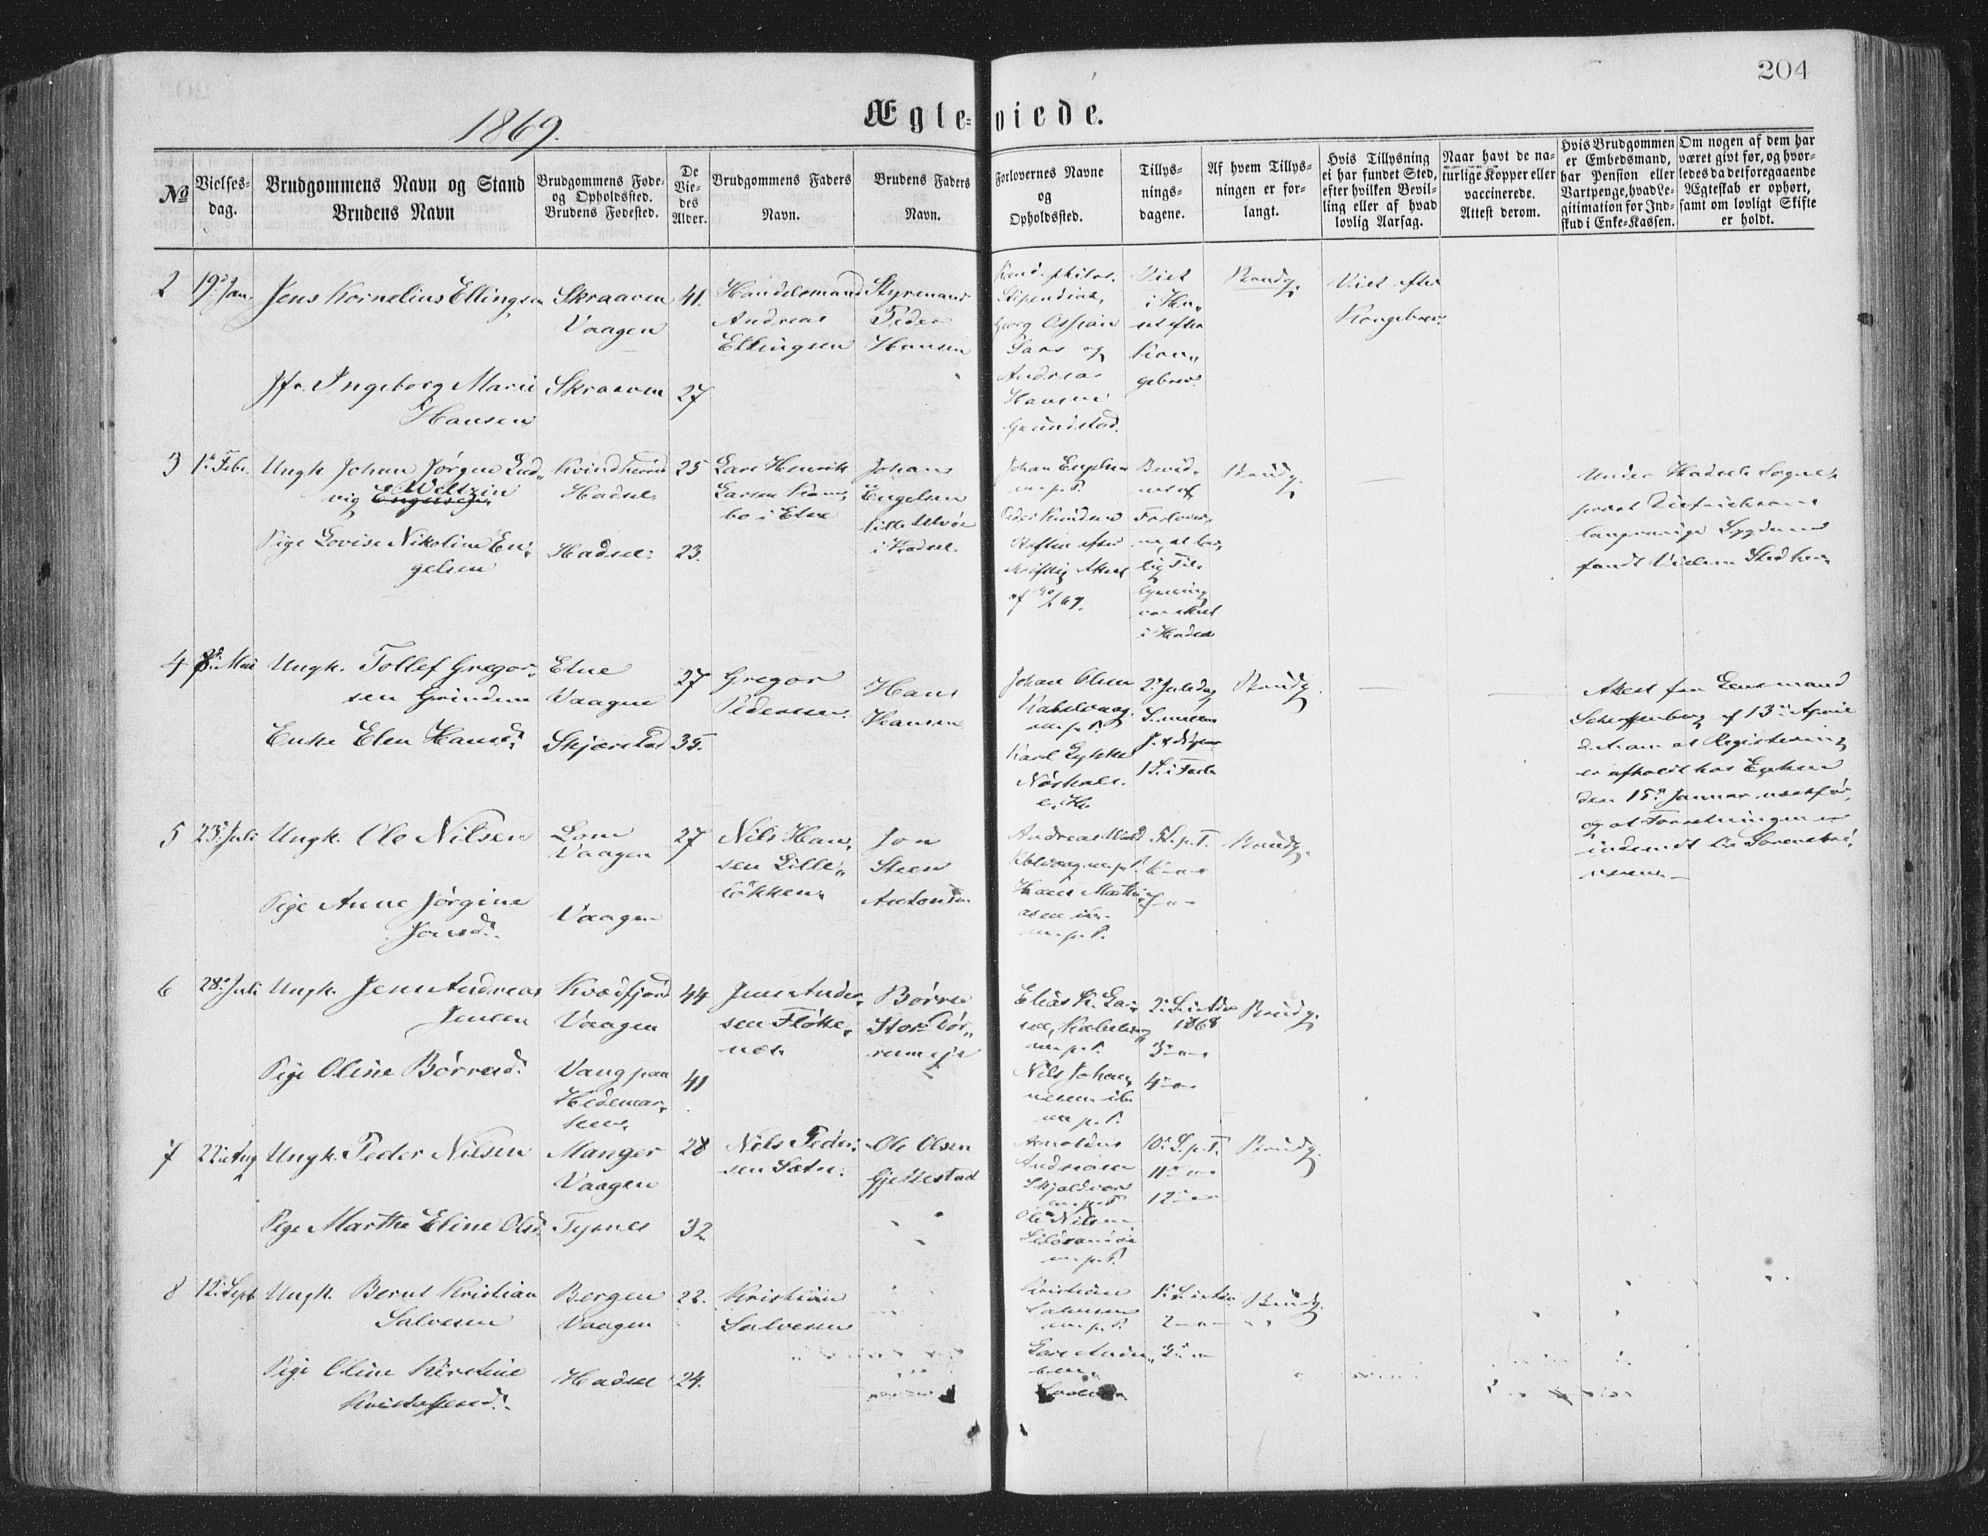 204
1869.
Ægteviede.
No
Vielses-
dag.
Brudgommens Navn og Stand
Brudens Navn
Brudgommens Føde-
og Opholdssted.
Brudens Fødested.
De
Vie-
des
Alder.
Brudgommens Faders
Navn.
Brudens Faders
Navn.
Forlovernes Navne
og
Opholdssted.
Tillys-
nings-
dagene.
Af hvem Tillys-
ningen er for-
langt.
Hvis Tillysning
ei har fundet Sted,
efter hvilken Bevil-
ling eller af hvad
lovlig Aarsag.
Naar havt de na-
turlige Kopper eller
vaccinerede.
Attest derom.
Hvis Brudgommen
er Embedsmand,
har Pension eller
Vartpenge, hvad Le-
gitimation for Ind-
skud i Enke-Kassen.
Om nogen af dem har
været gift før, og hvor-
ledes da det foregaaende
Ægteskab er ophørt,
samt om lovligt Skifte
er holdt.
2
19de Jan.
Jens Kornelius Ellingsen
Jfr. Ingeborg Marie
Hansen
Skraaven
Vaagen
Skraaven
41.
27
Handelsmand
Andreas
Ellingsen
Styrmand
Peder
Hansen
Kand. philos.
Stipendiat,
Georg Ossian
Sars og
Andreas
Hansen
Grundstad.
Viet
i Hu-
set efter
Kon-
gebrev.
Brudg.
Viet efter
Kongebrev.
3
1ste Febr.
Ungk. Johan Jørgen Lud-
vig Engelsen
Weltzin
Pige Lovise Nikoline En-
gelsen
Kvindherred
Hadsel
Hadsel.
25
23.
Lars Henrik
Larsen
bo i Etne
Johan
Engelsen
lille Ulvøe
i Hadsel.
Johan Engelsen
m.p.T.
Peder Knudsen
efter
skriftlig Attest
af /69.
af
Forlover-
ne, at lov-
lig Til-
lysning
var skeet
i Hadsel
Brudg.
Under Hadsels Sogne-
prest Dietrichsons
langvarige Sygdom
fandt Vielsen Sted her.
4
8de Mai
Ungk. Tollef Gregor-
sen Grinden
Enke Elen Hansd.
Etne
Vaagen
Skjærstad
27
35.
Gregor
Pedersen.
Hans
Hansen
Johan Olsen
Kabelvaag
m.p.T.
Karl Lykke
2. Juledag
S. mellem
J. & Nytaar
1 S. i Faste
Brudg.
Attest fra Lensmand
Scheffenberg af 13de April
d. A. om at Registrering
er afholdt hos Enken
den 15de Januar næstfør,
og at Forretningen er
indsendt til Sorenskri-
veren.
5
23de Juli
Ungk. Ole Nilsen
Pige Anne Jørgine
Jonsd.
Lom
Vaagen
Vaagen
27
Nils Han-
sen Lille-
løkken.
Jon
Steen
Antonsen
Andreas
Kblvaag m.p.T.
Hans Mathi-
asen ib.
m.p.T.
5 S. p. T.
6 — —
7 — —
Brudg.
6
28de Juli
Ungk. Jens Andreas
Jensen
Pige Oline Børresd.
Kvædfjord
Vaagen
Vang paa
Hedemar-
ken.
44
41
Jens Ander-
sen Fløtte-
næs.
Børre
Stor-Dør-
rumseje
Elias K. Lar-
sen, Kabelvaag
m.p.T.
Nils Johan-
nesen ib.
m.p.T.
2. S. i Adv.
1868
3 — —
4 — —
Brudg.
7
22de Aug
Ungk. Peder Nilsen
Pige Marthe Eline Olsd.
Manger
Vaagen
Tysnes
28
32
Nils Peder-
sen Sætre.
Ole Olsen
Gjellestad
Arnolius
Andreasen
Skjoldvær
m.p.T.
Ole Nilsen
m.p.T.
10de S. p. T.
11 — —
12 — —
Brudg.
8
12. Sept
Ungk. Bernt Kristian
Salvesen
Pige Oline Kirstine
Kristoffersd.
Bergen
Vaagen
Hadsel
22.
24.
Kristian
Salvesen
Kristian
Salvesen
m.p.T.
1 S. i Adv.
2 — —
3 — —
Brudg.